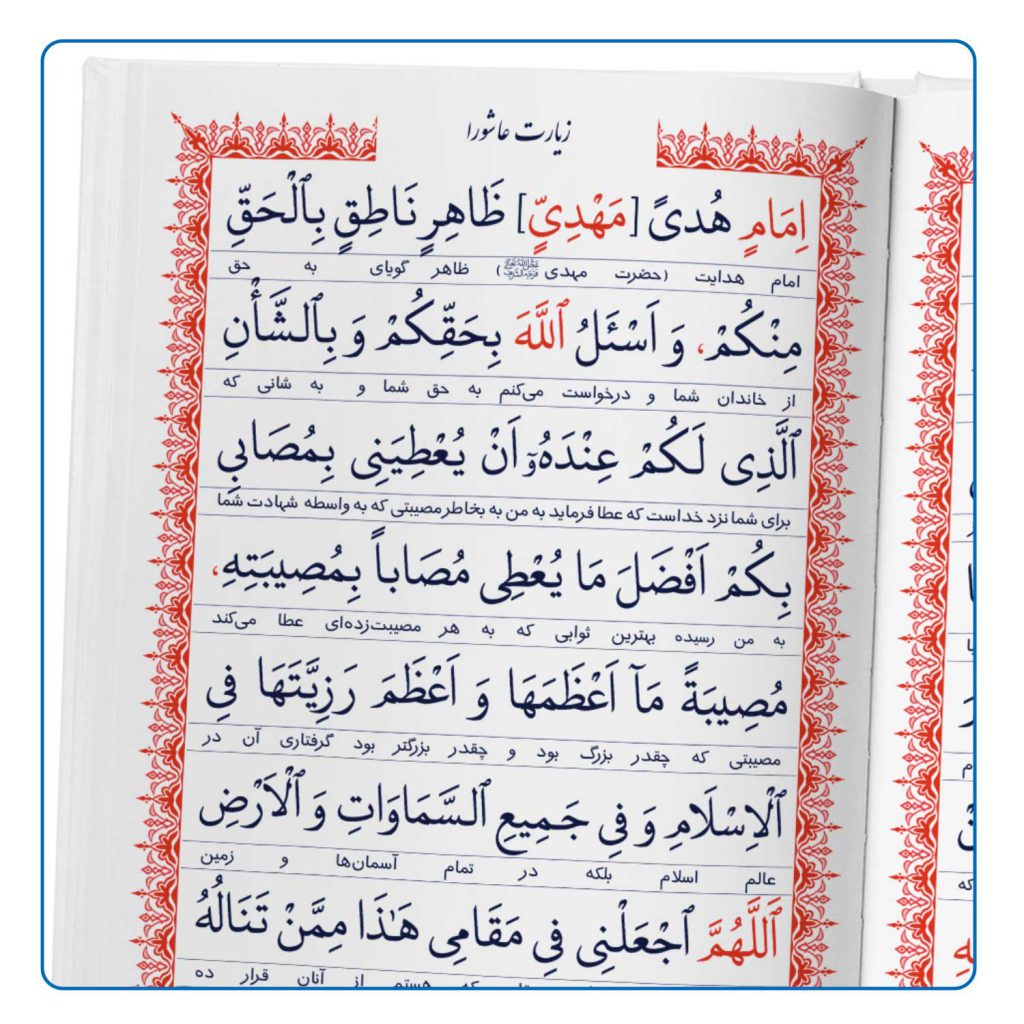 زیارت عاشورا
اِمَامٍ هُدىً [مَهْدِیٍّ] ظَاهِرٍ نَاطِقٍ بِٱلْحَقِّ
امام هدایت (حضرت مهدی) ظاهر گویای به حق
مِنْکُمْ، وَ اَسْئَلُ ٱللَّهَ بِحَقِّکُمْ وَ بِٱلشَّأْنِ
از خاندان شما و درخواست می‌کنم به حق شما و به شانی که
ٱلَّذِی لَکُمْ عِنْدَهُۥٓ اَنْ یُعْطِیَنِی بِمُصَابِی
برای شما نزد خداست که عطا فرماید به من به بخاطر مصیبتی که به واسطه شهادت شما
بِکُمْ اَفْضَلَ مَا یُعْطِی مُصَاباً بِمُصِیبَتِهِ،
به من رسیده بهترین ثوابی که به هر مصیبت‌زده‌ای عطا می‌کند
مُصِیبَةً مَآ اَعْظَمَهَا وَ اَعْظَمَ رَزِیَّتَهَا فِی
مصیبتی که چقدر بزرگ بود و چقدر بزرگتر بود گرفتاری آن در
ٱلْاِسْلَامِ وَ فِی جَمِیعِ ٱلسَّمَاوَاتِ وَ ٱلْاَرْضِ
عالم اسلام بلکه در تمام آسمان‌ها و زمین
ٱَللَّهُمَّ ٱجْعَلْنِی فِی مَقَامِی هَـٰذَا مِمَّنْ تَنَالُهُ
که هستم از آنان قرار ده